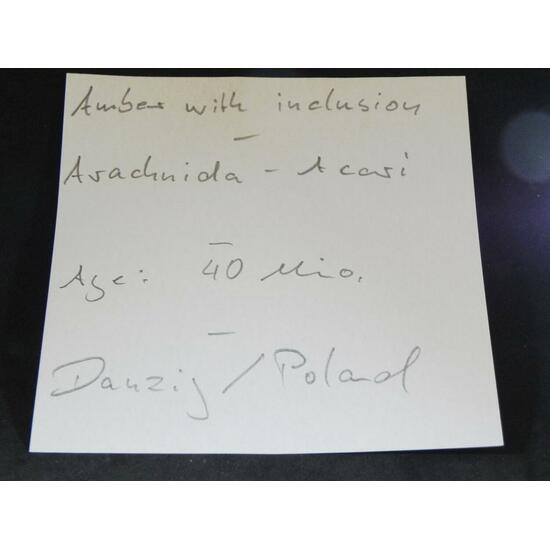 Amber with inclusion
-
Arachnida - Acari
-
Age: 40 Mio.
-
Danzig / Poland